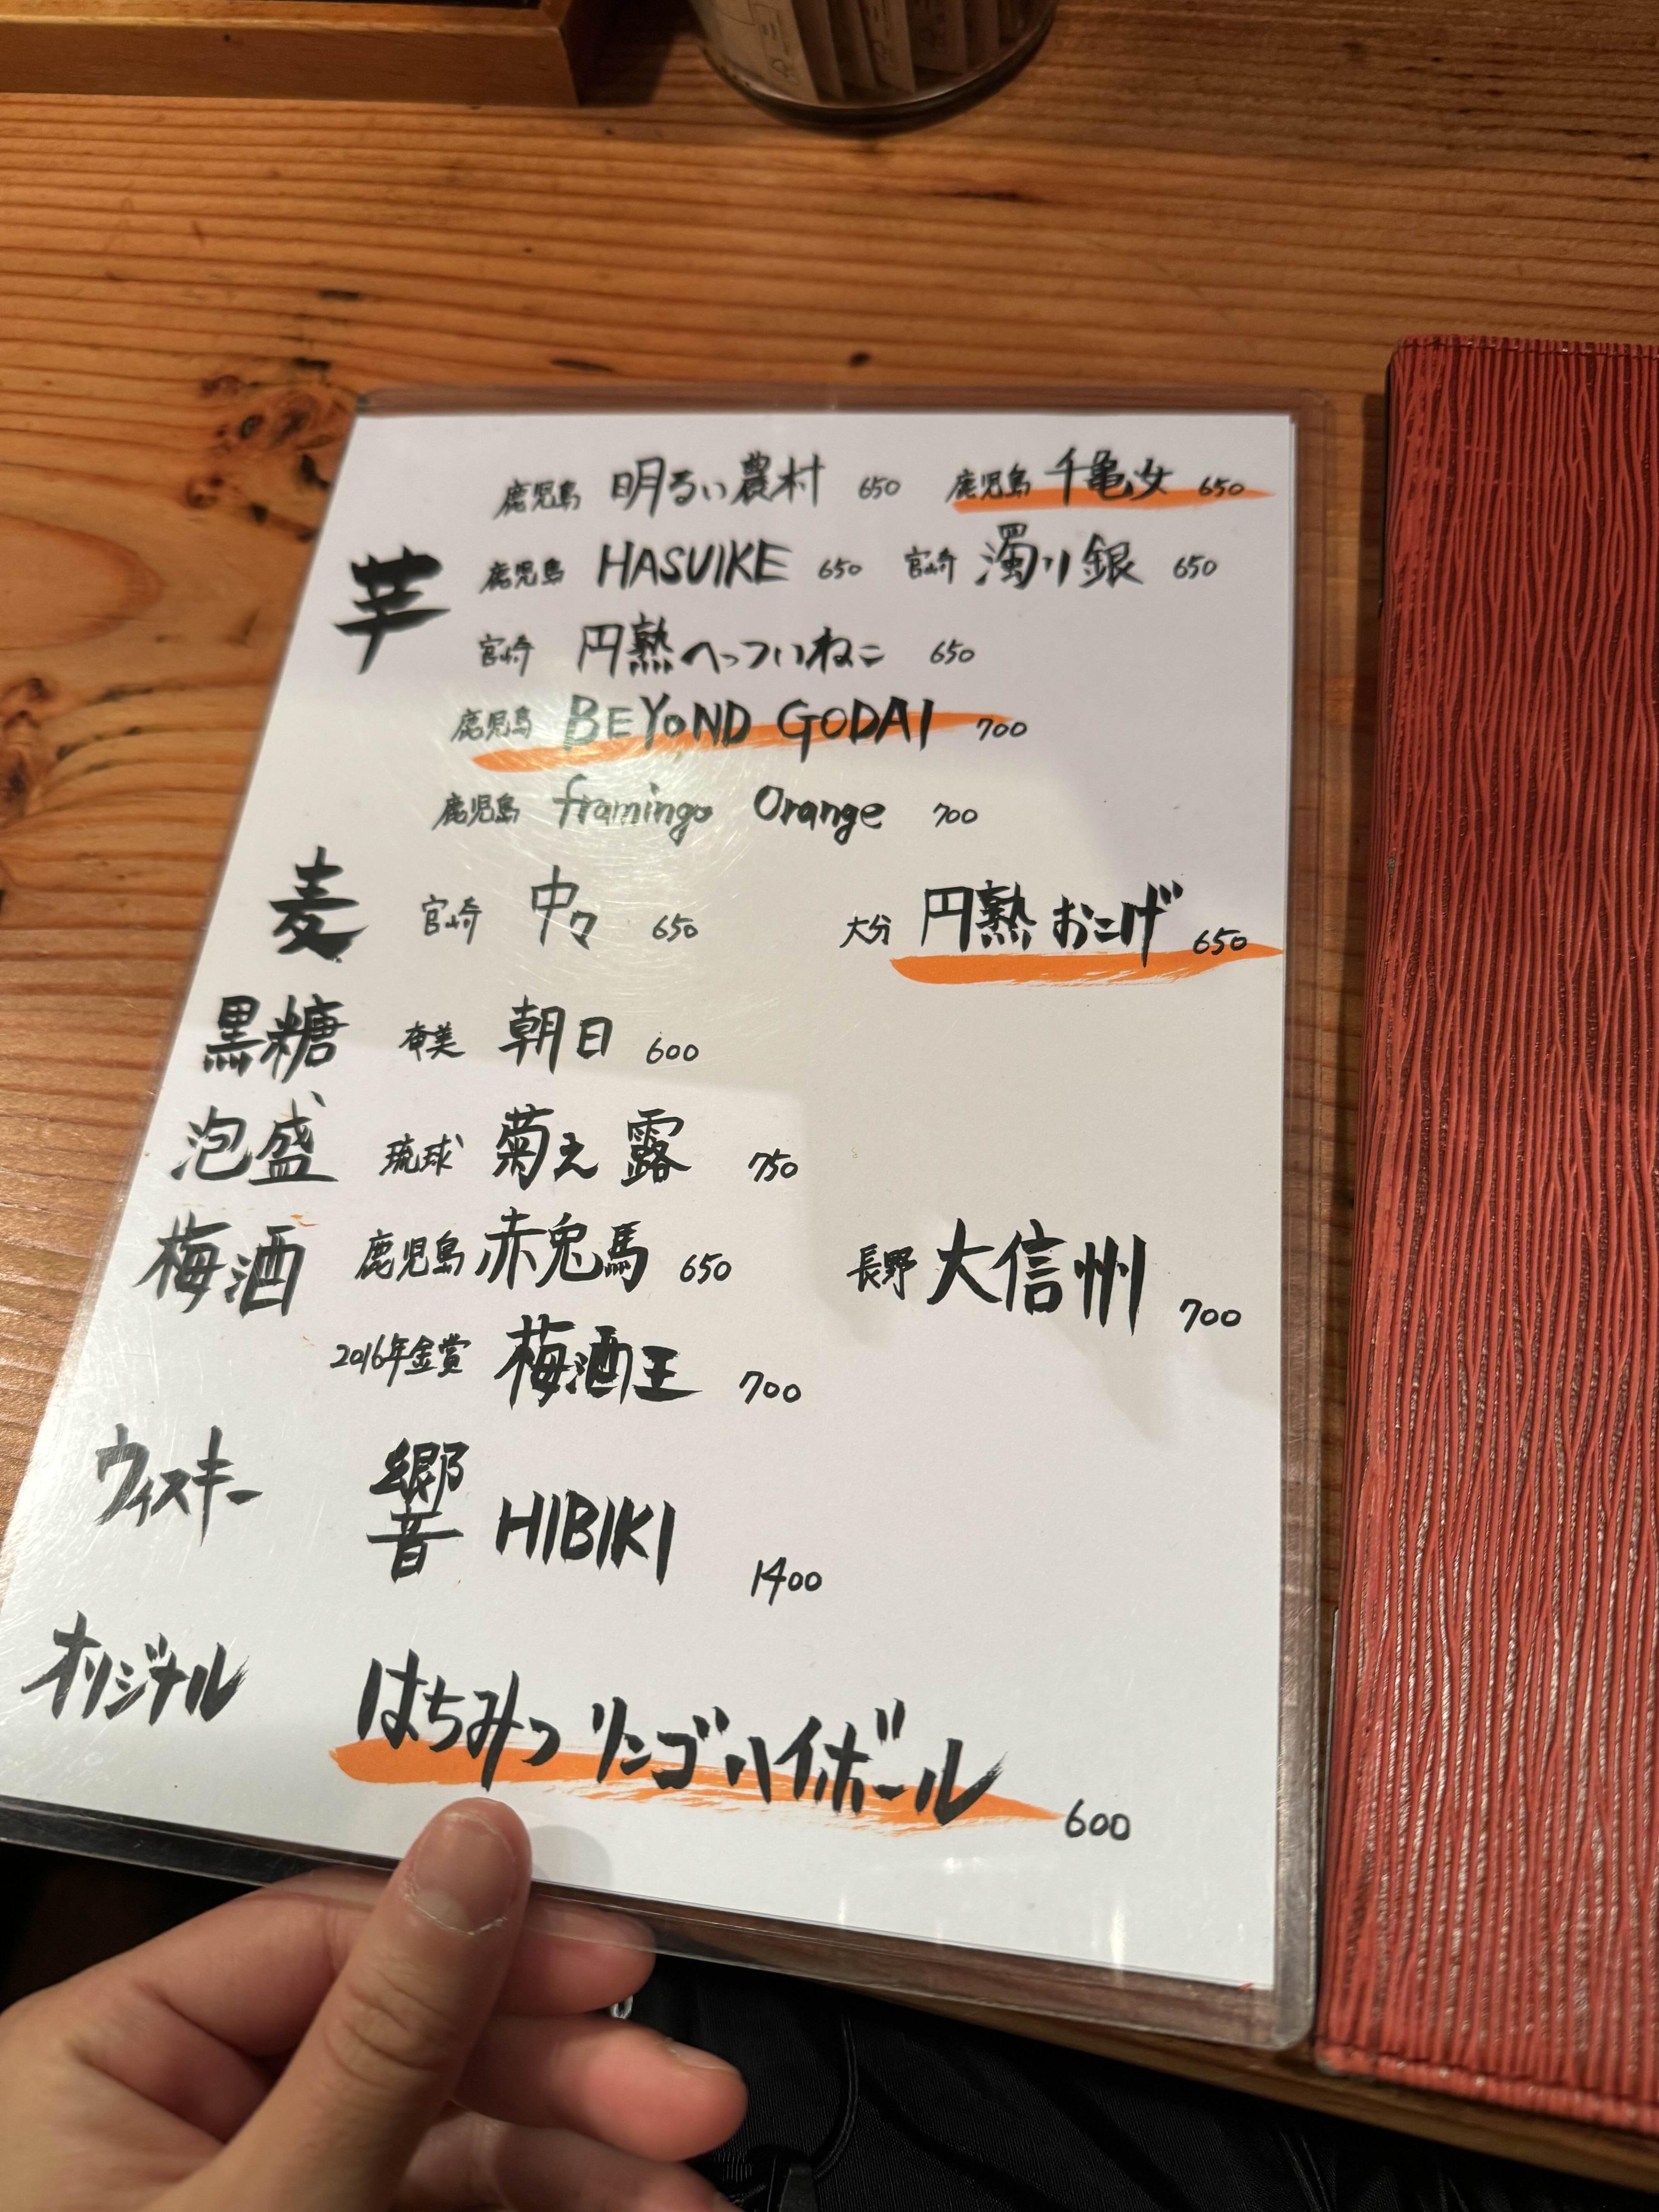 芋
鹿児島 明るい農村 650 鹿児島 千亀女 650
鹿児島 HASUIKE 650 宮崎 濁り銀 650
宮崎 円熟へっついねこ 650
鹿児島 BEYOND GODAI 700
鹿児島 framingo Orange 700
麦 宮崎 中々 650 大分 円熟おこげ 650
黒糖 奄美 朝日 600
泡盛 琉球 菊之露 750
梅酒 鹿児島 赤兎馬 650 長野 大信州 700
2016年金賞 梅酒王 700
ウィスキー 響 HIBIKI 1400
オリジナル はちみつリンゴハイボール 600